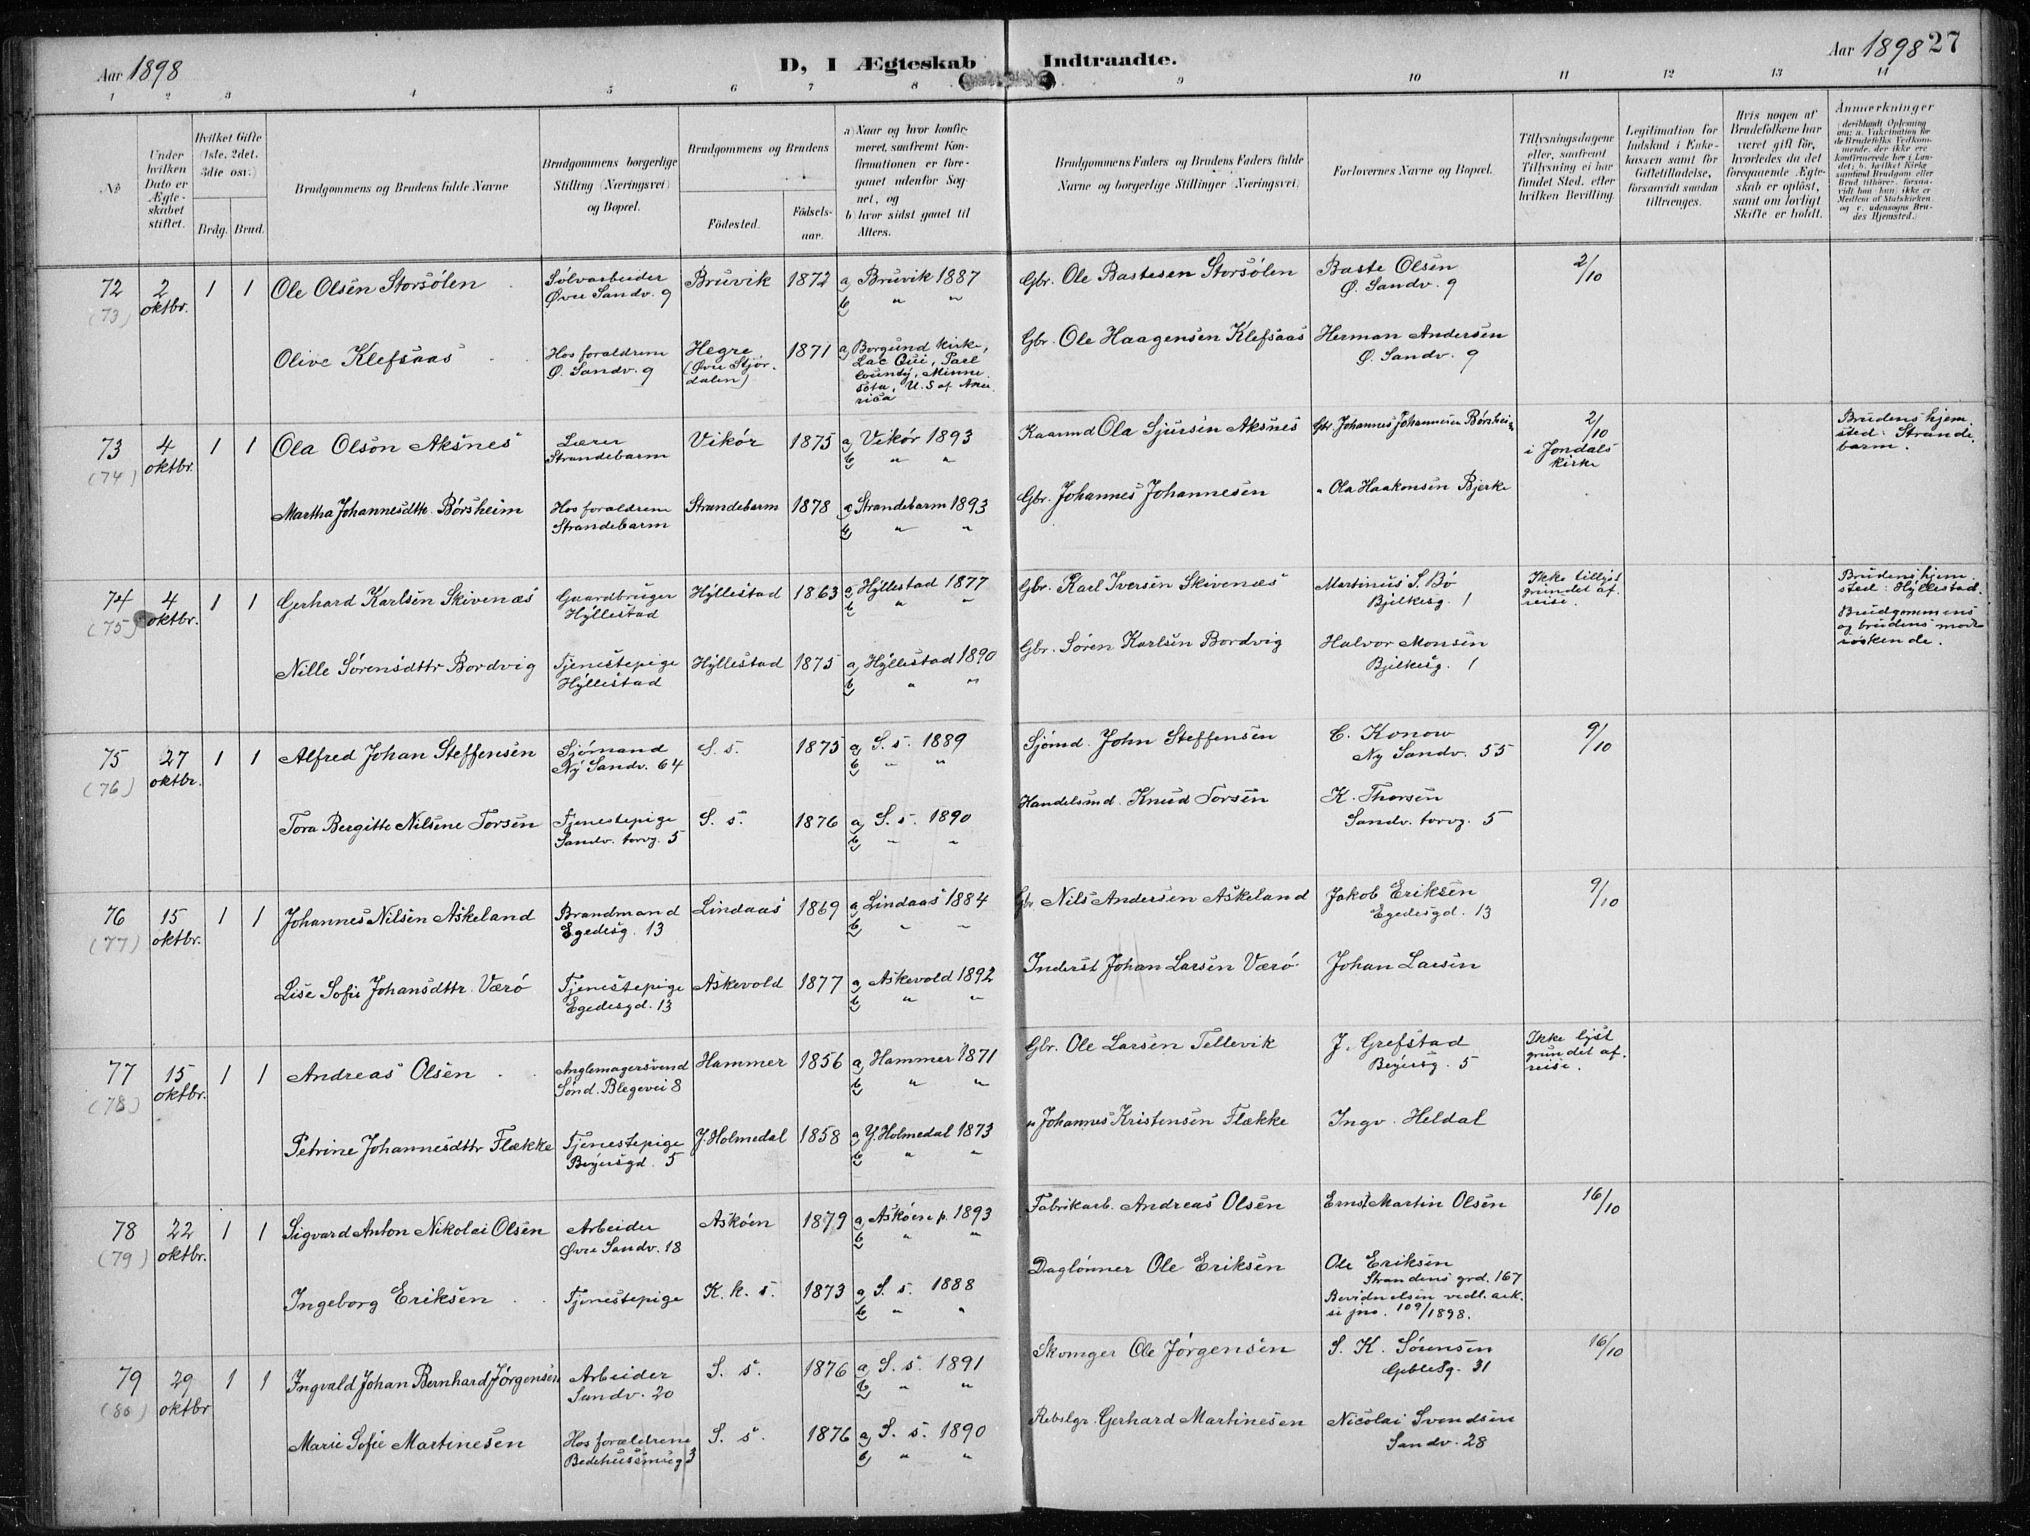 Aar 1898
D, I Ægteskab Indtraadte.
Aar 1898 27
1 2 3 4 5 6 7 8 9 10 11 12 13 14
No
Under hvilken Dato er Ægteskabet stiftet.
Hvilket Gifte (1ste, 2det, 3die osv.)
Brdg. Brud.
Brudgommens og Brudens fulde Navne
Brudgommens borgerlige Stilling (Næringsvei) og Bopæl.
Brudgommens og Brudens
Fødested.
Fødselsaar.
a) Naar og hvor konfirmeret, saafremt Konfirmationen er foregaaet udenfor Sognet, og
b) hvor sidst gaaet til Alters.
Brudgommens Faders og Brudens Faders fulde Navne og borgerlige Stillinger (Næringsvei)
Forlovernes Navne og Bopæl.
Tillysningsdagene eller, saafremt Tillysning ei har fundet Sted, efter hvilken Bevilling.
Legitimation for Indskud i Enkekassen samt for Giftetilladelse, forsaavidt saadan tiltrænges.
Hvis nogen af Brudefolkene har været gift før, hvorledes da det foregaaende Ægteskab er opløst, samt om lovligt Skifte er holdt.
Anmærkninger
(deriblandt Oplysning om: a. Vakcination for de Brudefolks Vedkommende, der ikke ere konfirmerede her i Landet; b. hvilket Kirkesamfund Brudgom eller Brud tilhører, forsaavidt han (hun) ikke er Medlem af Statskirken, og c. udensogns Brudes Hjemsted.)
72 (73) 2 oktbr. 1 1 Ole Olsen Storsølen
Sølvarbeider Øvre Sandv. 9
Bruvik 1872 a) Bruvik 1887
b) " "
Gbr. Ole Bastesen Storsølen
Baste Olsen Ø. Sandv. 9
2/10
Olive Klefsaas
Hos forældrene Ø. Sandv. 9
Hegre (Øvre Stjørdalen) 1871
a) Borgund kirke, Lac Qui, Parl County, Minnesota, U.S. of America
Gbr. Ole Haagensen Klefsaas
Herman Andersen Ø. Sandv. 9
73 (74) 4 oktbr. 1 1 Ola Olson Aksnes
Lærer Strandebarm
Vikør 1875 a) Vikør 1893
b) " "
Kaarmd Ola Sjursen Aksnes
Gbr. Johannes Johannesen Børsheim
2/10 i Jondals kirke
Brudens hjemsted: Strandebarm.
Martha Johannesdttr. Børsheim
Hos forældrene Strandebarm
Strandebarm 1878 a) Strandebarm 1893
b) " "
Gbr. Johannes Johannesen
" Ola Haakonsen Bjerke
74 (75) 4 oktbr. 1 1 Gerhard Karlsen Skivenæs
Gaardbruger Hyllestad
Hyllestad 1863 a) Hyllestad 1877
b) " "
Gbr. Karl Iversen Skivenæs
Martinus S. Bø Bjelkesg. 1
Ikke tillyst grundet afreise.
Brudens hjemsted: Hyllestad.
Brudgommens og brudens mødre søskende.
Nille Sørensdttr Bordvig
Tjenestepige Hyllestad
Hyllestad 1875 a) Hyllestad 1890
b) " "
Gbr. Søren Karlsen Bordvig
Halvor Monsen Bjelkesg. 1
75 (76) 27 oktbr. 1 1 Alfred Johan Steffensen
Sjømand Ny Sandv. 64
S. s. 1875 a) S. s. 1889
b) " "
Sjømd. John Steffensen
C. Konow Ny Sandv. 55
9/10
Tora Bergitte Nilsine Torsen
Tjenestepige Sandv. torvg. 5
S. s. 1876 a) S. s. 1890
b) " "
Handelsmd. Knud Torsen
K. Thorsen Sandv. torvg. 5
76 (77) 15 oktbr. 1 1 Johannes Nilsen Askeland
Brandmand Egedesg. 13
Lindaas 1869 a) Lindaas 1884
b) " "
Gbr. Nils Andersen Askeland
Jakob Eriksen Egedesgd. 13
9/10
Lise Sofie Johansdttr. Værø
Tjenestepige Egedesgd. 13
Askevold 1877 a) Askevold 1892
b) " "
Inderst Johan Larsen Værø
Johan Larsen
77 (78) 15 oktbr. 1 1 Andreas Olsen
Anglemagersvend Sønd. Blegevei 8
Hammer 1856 a) Hammer 1871
b) " "
Gbr. Ole Larsen Tellevik
J. Grefstad Beyersg. 5
Ikke lyst grundet afreise.
Petrine Johannesdttr Flække
Tjenestepige Beyersgd. 5
Y. Holmedal 1858 a) Y. Holmedal 1873
b) " "
" Johannes Kristensen Flække
Ingv. Heldal
78 (79) 22 oktbr. 1 1 Sigvard Anton Nikolai Olsen
Arbeider Øvre Sandv. 18
Askøen 1879 a) Askøen p. 1893
b) " "
Fabrikarb. Andreas Olsen
Ernst Martin Olsen
16/10
Ingeborg Eriksen
Tjenestepige
K. k. s. 1873 a) S. s. 1888
b) " "
Daglønner Ole Eriksen
Ole Eriksen Strandens grd. 167
Bevidnelsen vedl. ark. si jno. 109/1898.
79 (80) 29 oktbr 1 1 Ingvald Johan Bernhard Jørgensen
Arbeider Sandv. 20
S. s. 1876 a) S. s. 1891
b) " "
Skomgr Ole Jørgensen
S. K. Sørensen Geblesg. 31
16/10
Marie Sofie Martinesen
Hos forældrene Bedehussmug 3
S. s. 1876 a) S. s. 1890
b) " "
Rebslgr. Gerhard Martinesen
Nicolai Svendsen Sandv. 28